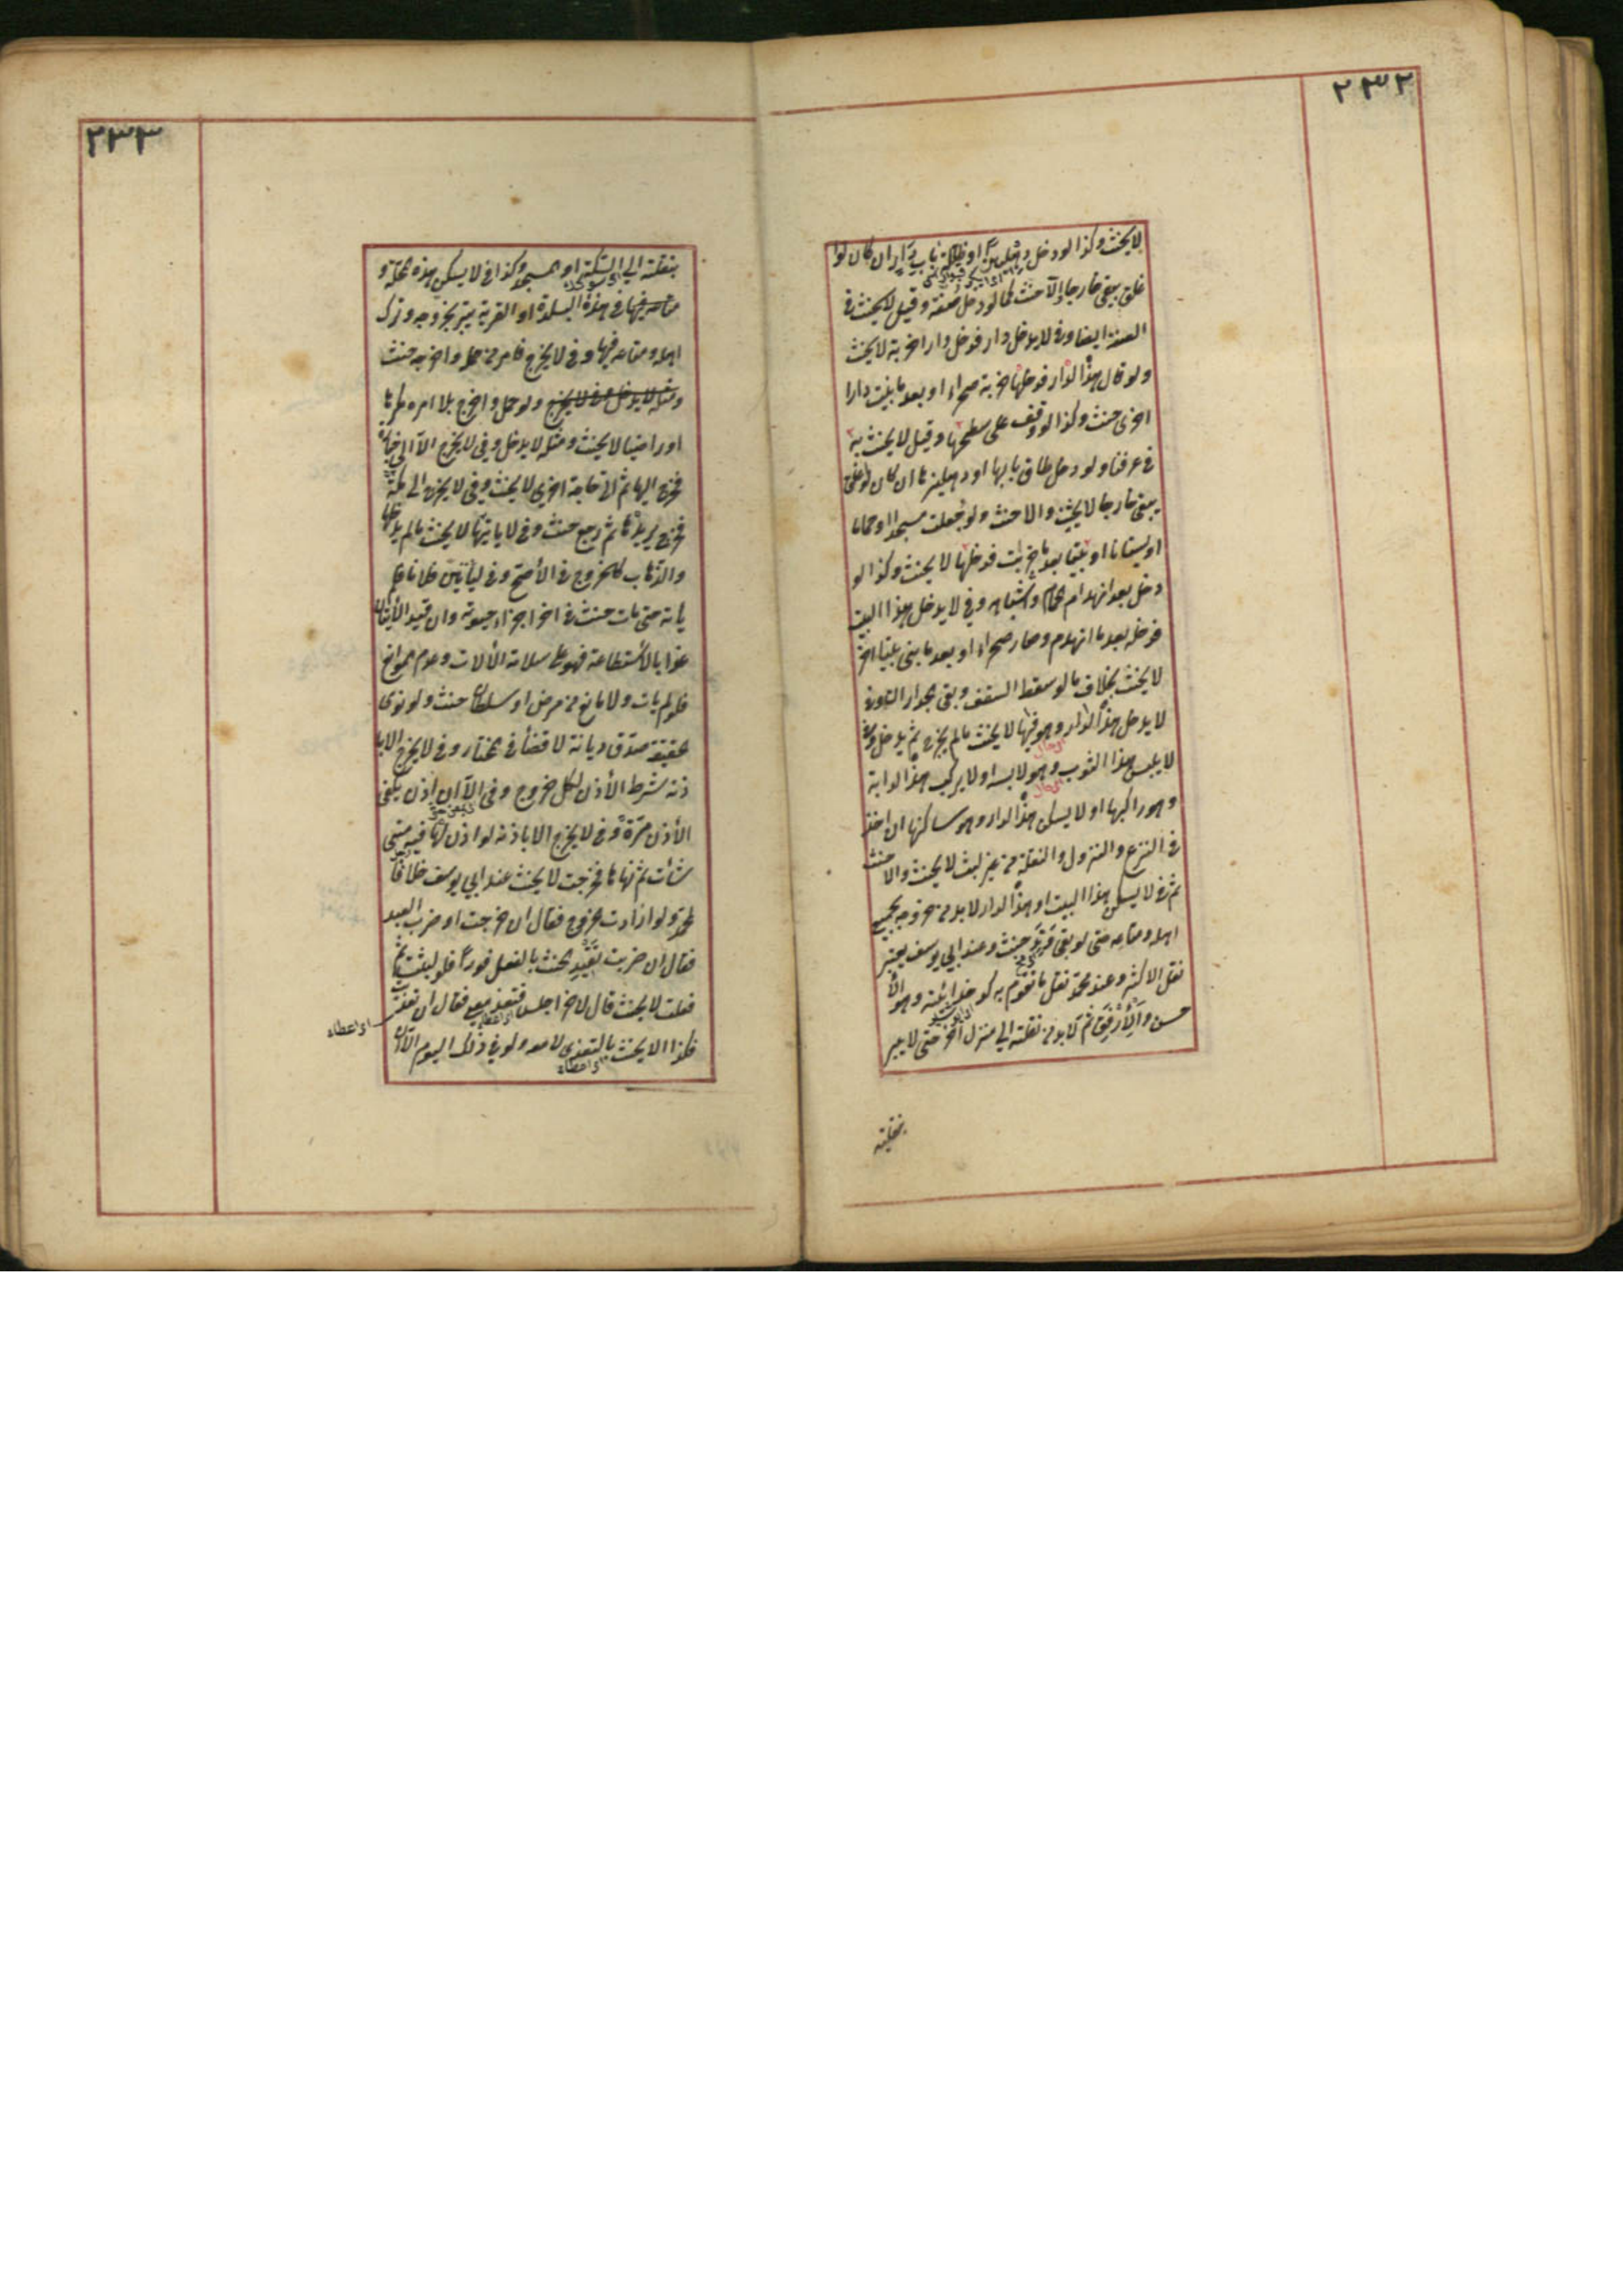 ٢٣٢
لا يحنث وكذا لو دخل دهليزا او ظلة باب دار ان كان لو ا
غلق يبقى خارجا والا حنث كما لو دخل صفة وقيل لا يحنث في
الصفة ايضا وفي لا يدخل دار فدخل دارا خربة لا يحنث
ولو قال هذه الدار فدخلها خربة صحراء او بعد ما بنيت دارا
اخرى حنث وكذا لو وقف على سطحها وقيل لا يحنث به
في عرفنا ولو دخل طاق بابها او دهليزها ان كان لو اغلق
يبقى خارجا لا يحنث والا حنث ولو جعلت مسجدا او حماما
او بستانا او بيتا بعد ما خربت فدخلها لا يحنث وكذا لو
دخل بعد انهدام الحمام واشباهه وفي لا يدخل هذا البيت
فدخله بعد ما انهدم وصار صحراء او بعد ما بنى بيتا اخر
لا يحنث بخلاف ما لو سقط السقف وبقى الجدار وفي
لا يدخل هذه الدار وهو فيها لا يحنث ما لم يخرج ثم يدخل وفي
لا يلبس هذا الثوب وهو لابسه او لا يركب هذه الدابة
وهو راكبها او لا يسكن هذه الدار وهو ساكنها ان اخذ
في النزع والنزول والنقلة من غير لبث لا يحنث والا حنث
ثم في لا يسكن هذا البيت او هذه الدار لا بد من خروجه بجميع
اهله ومتاعه حتى لو بقى وتد حنث وعند ابي يوسف يعتبر
نقل الاكثر وعند محمد نقل ما تقوم به كدخدائيته وهو الا
حسن والارفق ثم لا بد من نقلته الى منزل اخر حتى لا يبر
بنقلته
٢٣٣
بنقلته الى السكة او المسجد وكذا في لا يسكن هذه المحلة و
في هذه البلدة او القرية يبر بخروجه وترك
اهله ومتاعه فيها وفي لا يخرج فامر من حمله واخرجه حنث
ولو حمل واخرج بلا امره مكرها
او راضيا لا يحنث ومثله لا يدخل وفي لا يخرج الا الى جنازة
فخرج اليها ثم اتى حاجة اخرى لا يحنث وفي لا يخرج الى مكة
فخرج يريدها ثم رجع حنث وفي لا ياتيها لا يحنث ما لم يدخلها
والذهاب كالخروج في الأصح وفي ليأتين فلانا فلم
ياته حتى مات حنث في اخر اجزاء حيوته وان قيد الأتيان
غدا بالاستطاعة فهو على سلامة الألات وعدم الموانع
فلو لم يات ولا مانع من مرض او سلطان حنث ولو نوى
الحقيقة صدق ديانة لا قضأ في المختار وفي لا يخرج الا با
ذنه شرط الأذن لكل خروج وفي الا ان اذن يكفى
الأذن مرة وفي لا يخرج الا باذنه لو اذن لها فيه متى
شأت ثم نهاها فخرجت لا يحنث عند ابي يوسف خلافا
لمحمد ولو ارادت الخروج فقال ان خرجت او ضرب العبد
فقال ان ضربت تقيد الحنث بالفعل فورا فلو لبثت ثم
فعلت لا يحنث قال لاخر اجلس فتغد معي فقال ان تغديت
او اعطاء
فكذا لا يحنث بالتغدى لا معه ولو في ذلك اليوم الا ان
او اعطاء